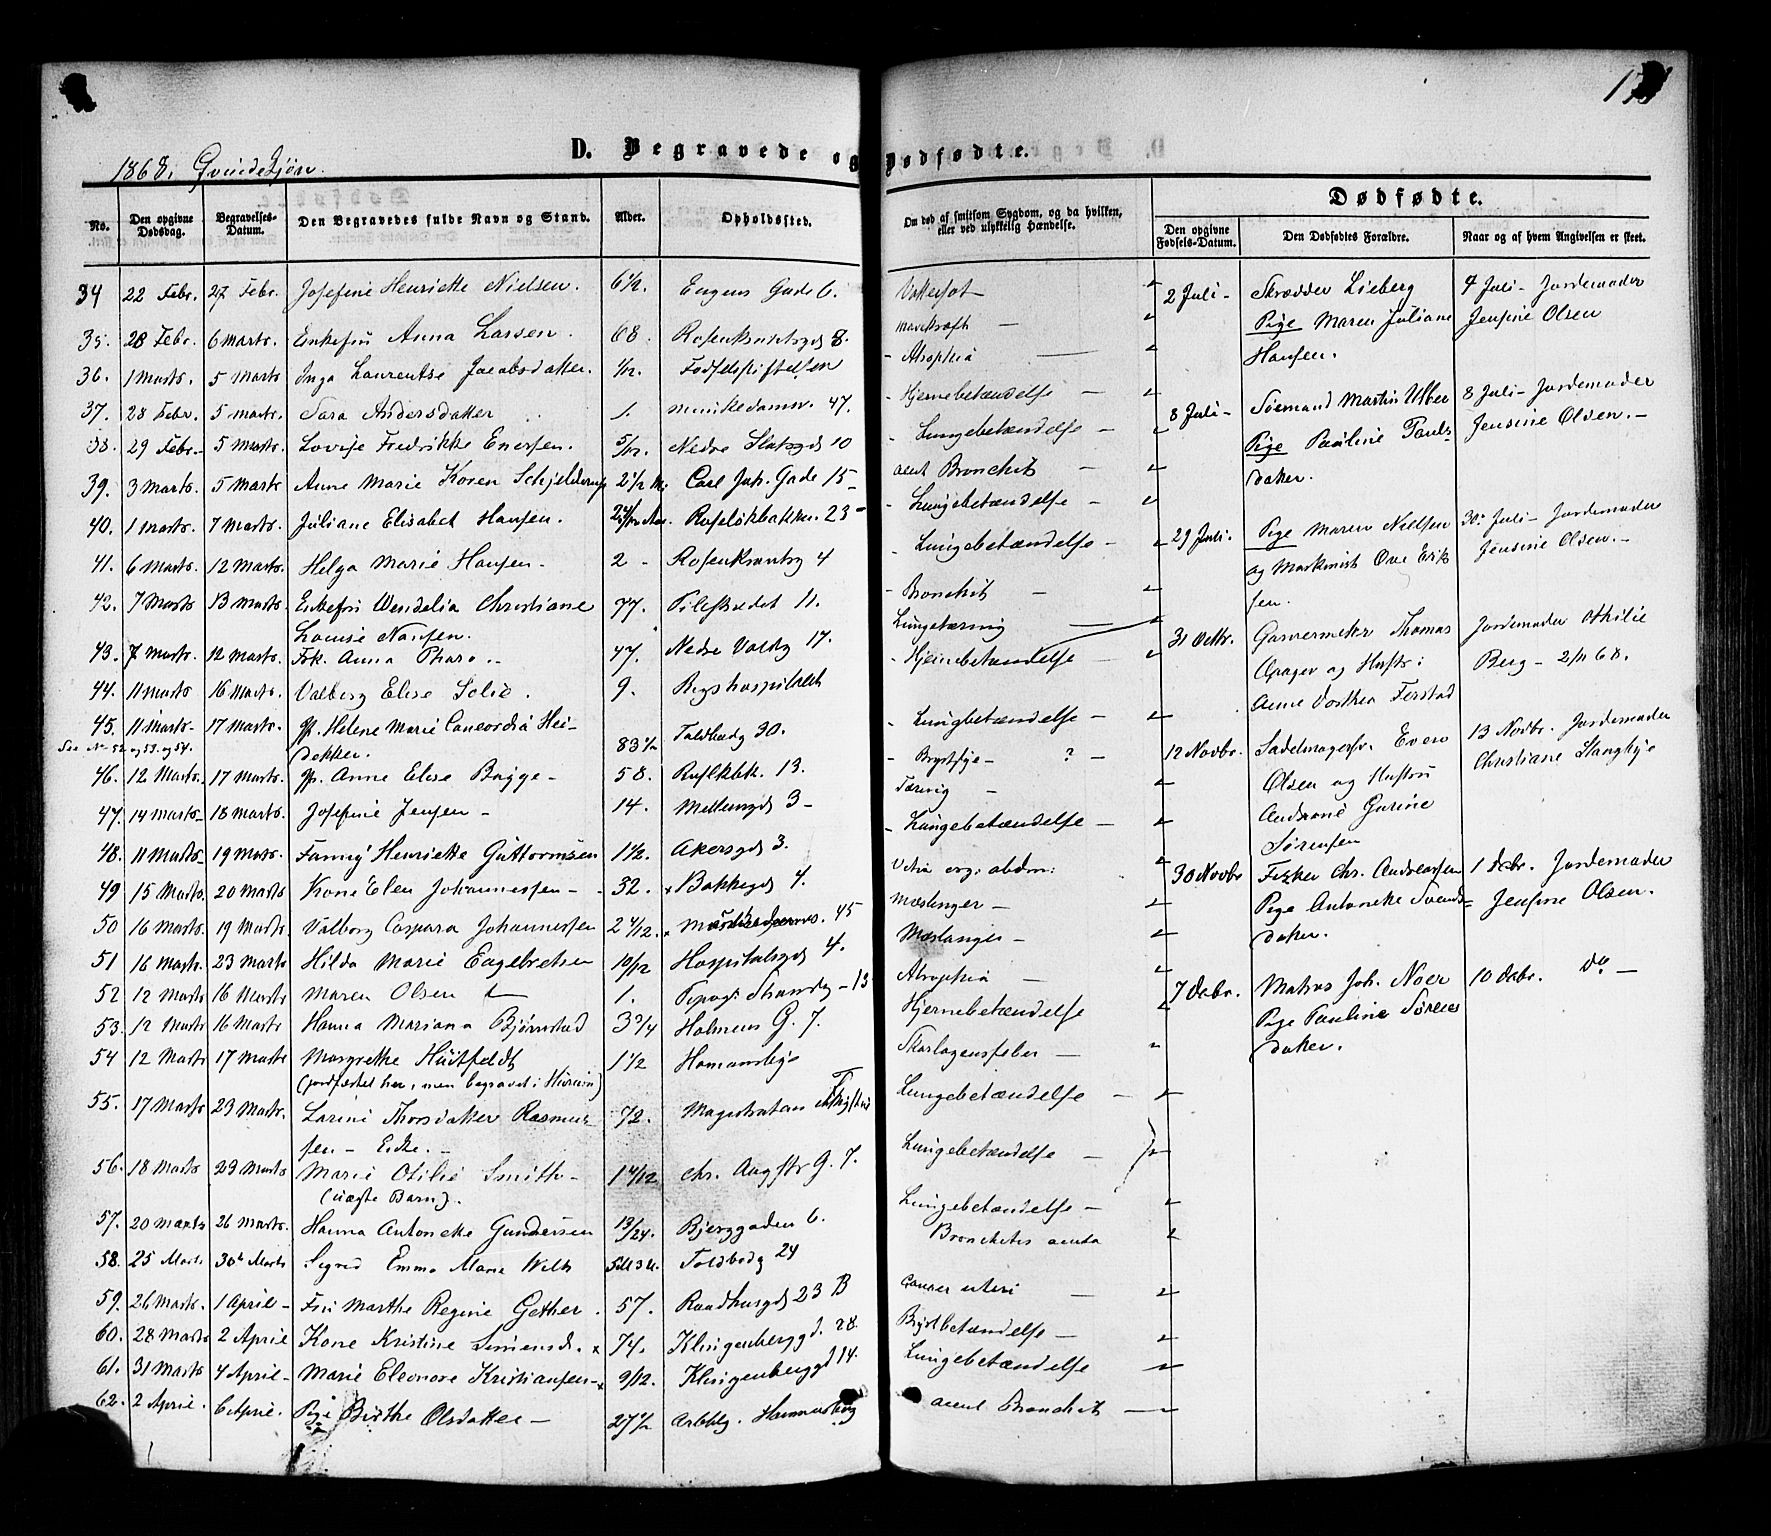 171
D. Begravede og Dødfødte.
1868. Qvindekjøn.
No.
Den opgivne Dødsdag.
Begravelses-Datum.
Den Begravedes fulde Navn og Stand.
Alder.
Opholdssted.
Om død af smitsom Sygdom, og da hvilken, eller ved ulykkelig Hændelse.
Dødfødte.
Den opgivne Fødsels-Datum.
Den Dødfødtes Forældre.
Naar og af hvem Angivelsen er skeet.
34 22 Febr. 27 Febr. Josefine Henriette Nielsen. 6 1/2 Eugens Gade 6. Vattersot
35. 28 Febr. 6 Marts. Enkefru Anna Larsen. 68. Rosenkrantzgd 8. Mavekræft —
36. 1 Marts. 5 Marts Inga Laurentse Jacobsdatter. 1/12. Fødselsstiftelsen Atrophia
37. 28 Febr. 5 Marts. Sara Andersdatter 1. Munkedamsv. 47. Hjernebetændelse —
38. 29 Febr. 5 Marts. Lovise Fredrikke Enersen. 5/12. Nedre Slotsgd 10 Lungebetændelse —
39. 3 Marts. 5 Marts Anne Marie Koren Schjelderup 2 1/2 M. Carl Joh. Gade 15 acut Bronchit —
40. 1 Marts. 7 Marts. Juliane Elisabet Hansen. Ruseløkbakken 23 Lungebetændelse —
41. 6 Marts. 12 Marts. Helga Marie Hansen. 2 Rosenkrantzg 4 Lungebetændelse —
42. 7 Marts 13 Marts. Enkefru Wendelia Christiane 77. Pilestrædet 11. Bronchit —
Louise Nansen.
43. 7 Marts. 12 Marts. Frk. Anna Pharo. 47. Nedre Voldg 17. Lungetæring
44. 11 Marts 16 Marts. Valborg Elise Solie. 9. Rigshospitalet Hjernebetændelse —
45. 11 Marts 17 Marts. Helene Marie Concordia Hei-
See No 52 og 53. og 54. dekker. 83 1/2 Toldbodg 30. Lungebetændelse —
46. 12 Marts. 17 Marts. Anne Elise Brygge 58. Ruslkbk. 13. Brystsyge ? —
47. 14 Marts 18 Marts. Josefine Jensen 14. Mellemgd 3 Tæring —
48. 11 Marts 19 Marts. Fanny Henriette Guttormsen 1 1/2. Akersgd 3. Lungebetændelse —
49 15 Marts. 20 Marts Kone Elen Johannessen 32. Bakkegd 4. Vitia org: abdm:
50 16 Marts. 19 Marts. Valborg Caspara Johannessen 2 4/12. Munkedamsv. 45 Mæslinger —
51 16 Marts. 23 Marts Hilda Marie Engebretsen 10/12 Hospitalsgd 4. Mæslinger —
52 12 Marts 16 Marts. Maren Olsen 1. Strandg 13 Atrophia —
53. 12 Marts 16 Marts. Hanna Mariana Bjørnstad 3 3/4 Holmens G. 7. Hjernebetændelse
54 12 Marts 17 Marts Margrethe Huitfeldt 1 1/2 Homansbye Skarlagensfeber —
(jordfæstet her, men begravet i Hurum)
55. 17 Marts 23 Marts. Larine Thorsdatter Rasmus- 72. Magistratens Lungebetændelse —
sen — Enke.
56. 18 Marts 23 Marts Marie Otilie Smith 1 4/12 Chr. Augsts G. 7. Lungebetændelse —
(uægte Barn).
57. 20 Marts 26 Marts. Hanna Antonette Gundersen 13/24. Bjerggaden 6. Lungebetændelse —
58. 25 Marts 30 Marts Sigrid Emma Marie With Toldbodg 24 Bronchites acuta
59. 26 Marts. 1 April Fru Marthe Regine Gether 57. Raadhusgd 23 B Cancer uteri
60. 28 Marts 2 April Kone Kristine Simensd. 74. Klingenberggd. 28. Brystbetændelse —
61. 31 Marts 4 April Marie Eleonore Kristiansen 9/12. Klingenberggd 14. Lungebetændelse
62. 2 April. 6 April. Pige Birthe Olsdatter 27 1/2 Arbbg. Hammersborg acut Bronchit —
2 Juli Skrædder Lieberg 4 Juli Jordemoder
Pige Maren Juliane Jensine Olsen
Hansen.
8 Juli Sømand Martin 8 Juli Jordemoder
Pige Pauline Pauls- Jensine Olsen.
datter.
29 Juli. Pige Maren Nielsen 30 Juli Jordemoder
og Maskinist Ove Erik- Jensine Olsen.
sen.
31 Octbr. Garvermester Thomas Jordemoder Othilie
og Hustru: Berg 2/11 68.
Anne Dorthea
12 Novbr. Sadelmagersv. Even 13 Novbr. Jordemoder
Olsen og Hustru Christiane Stangbye
Gurine
Sørensen
30 Novbr Fisker Chr. Andreassen 1 Decbr. Jordemoder
Pige Antonette Svends- Jensine Olsen.
datter.
7 Decbr. Matros Joh. Noer 10 Decbr. Do —
Pige Pauline Sørens
datter.